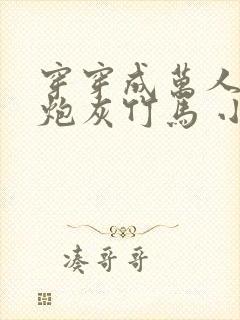 穿穿成萬人
炮灰竹馬小
凑哥哥